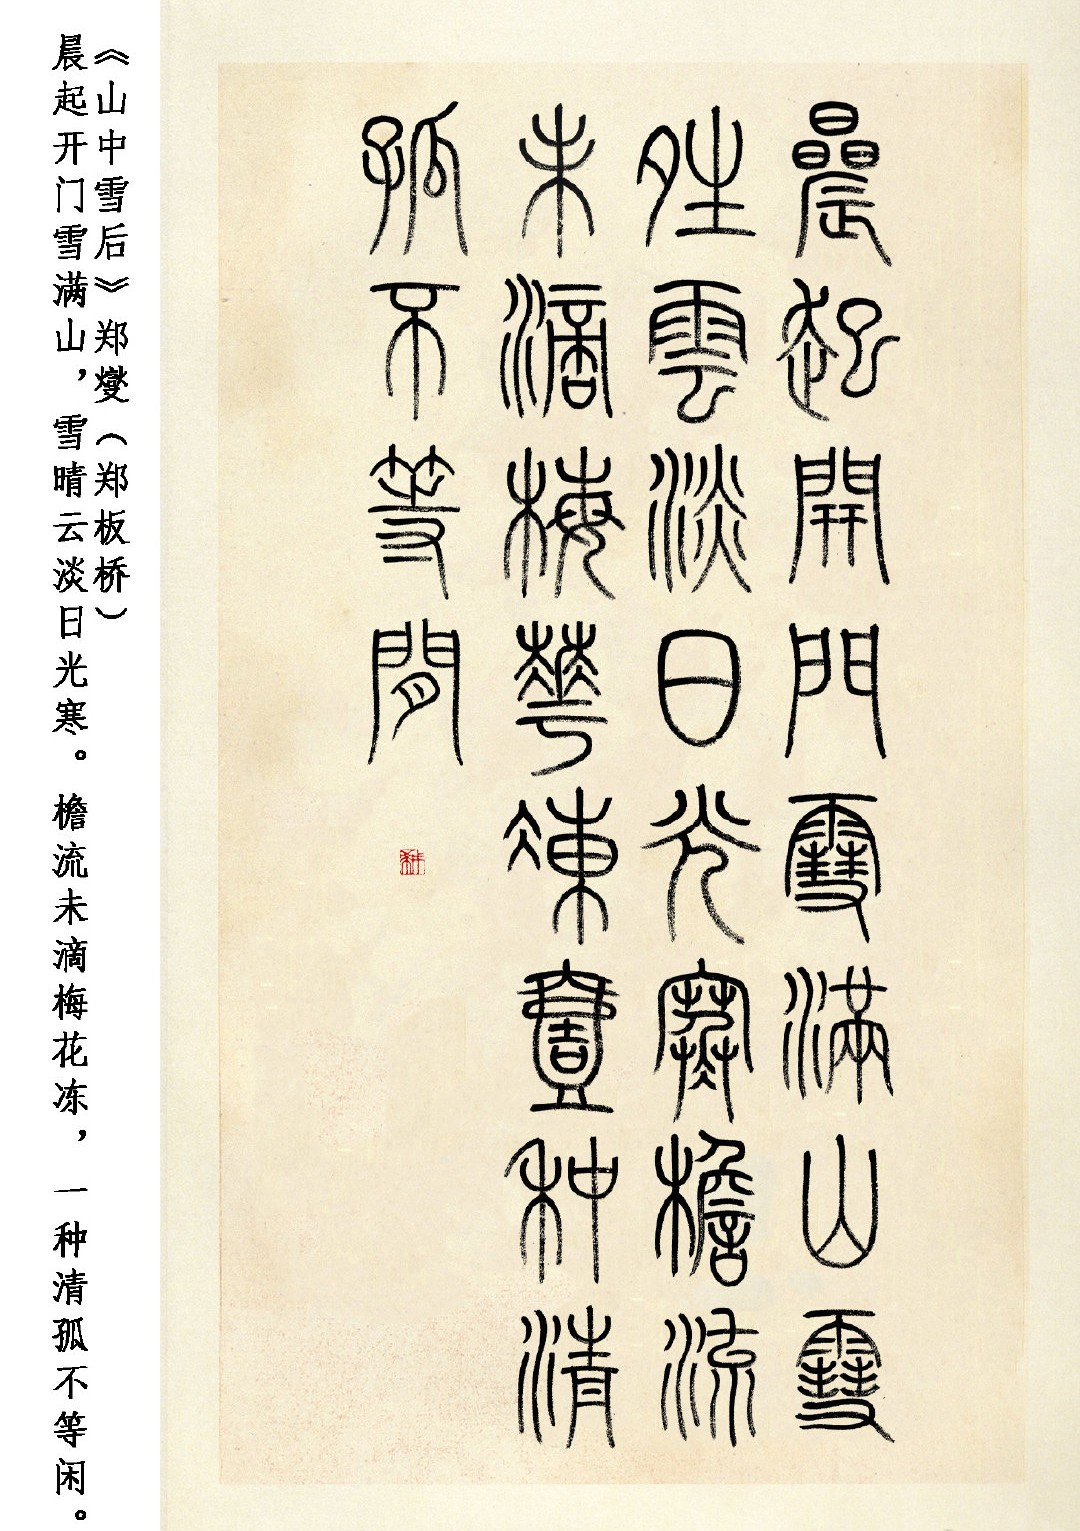 晨起開門雪滿山雪
夝雲淡日光寒檐流
未滴梅華凍壹种清
孤不等閒
《山中雪后》郑燮（郑板桥）
晨起开门雪满山，雪晴云淡日光寒。檐流未滴梅花冻，一种清孤不等闲。